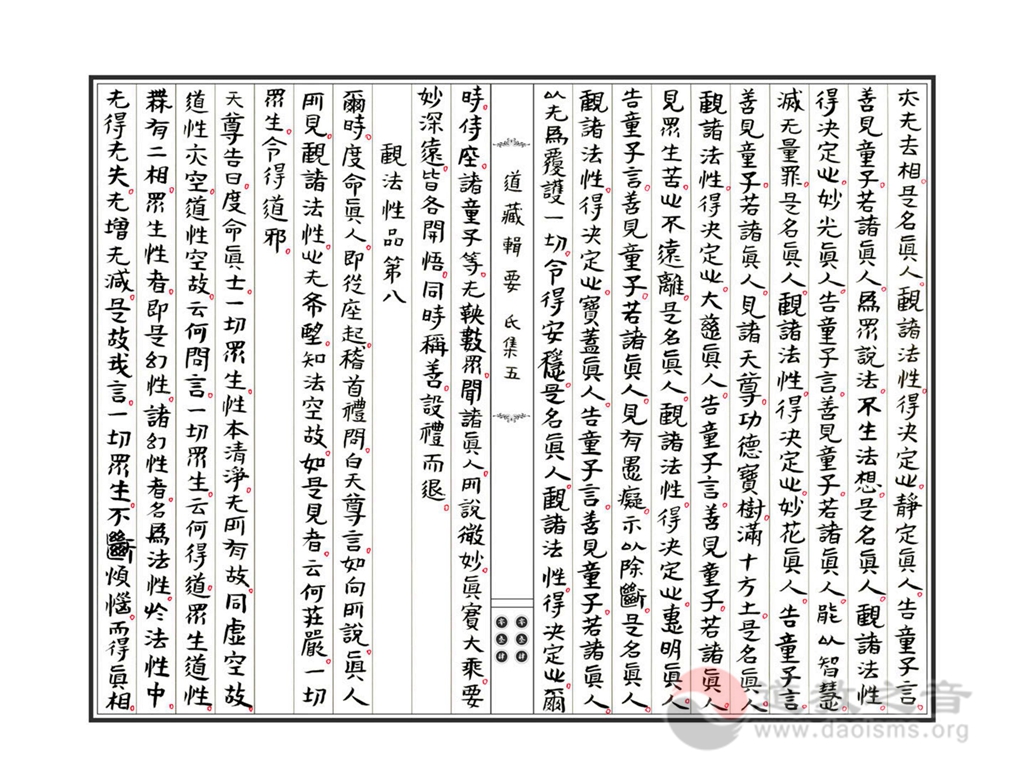 亦无去相是名眞人觀諸法性得決定也靜定眞人告童子言
善見童子若諸眞人爲眾說法不生法想是名眞人觀諸法性
得決定也妙光眞人告童子言善見童子若諸眞人能以智慧
滅无量罪是名眞人觀諸法性得決定也妙花眞人告童子言
善見童子若諸眞人見諸天尊功德寶樹滿十方土是名眞人
觀諸法性得決定也大慈眞人告童子言善見童子若諸眞人
見眾生苦也不遠離是名眞人觀諸法性得決定也惠明眞人
告童子言善見童子若諸眞人見有愚癡示以除斷是名眞人
觀諸法性得決定也寶蓋眞人告童子言善見童子若諸眞人
以无爲覆護一切令得安穩是名眞人觀諸法性得決定也爾
道藏輯要 氏集五
時侍座諸童子等无鞅數眾聞諸眞人所說微妙眞實大乘要
妙深遠皆各開悟同時稱善設禮而退
觀法性品第八
爾時度命眞人即從座起稽首禮問白天尊言如向所說眞人
所見觀諸法性也无希望知法空故如是見者云何莊嚴一切
眾生令得道邪
天尊告曰度命眞士一切眾生性本清淨无所有故同虛空故
道性亦空道性空故云何問言一切眾生云何得道眾生道性
無有二相眾生性者即是幻性諸幻性者名爲法性於法性中
无得无失无增无減是故我言一切眾生不斷煩惱而得眞相
道教之音
www.daoisms.org